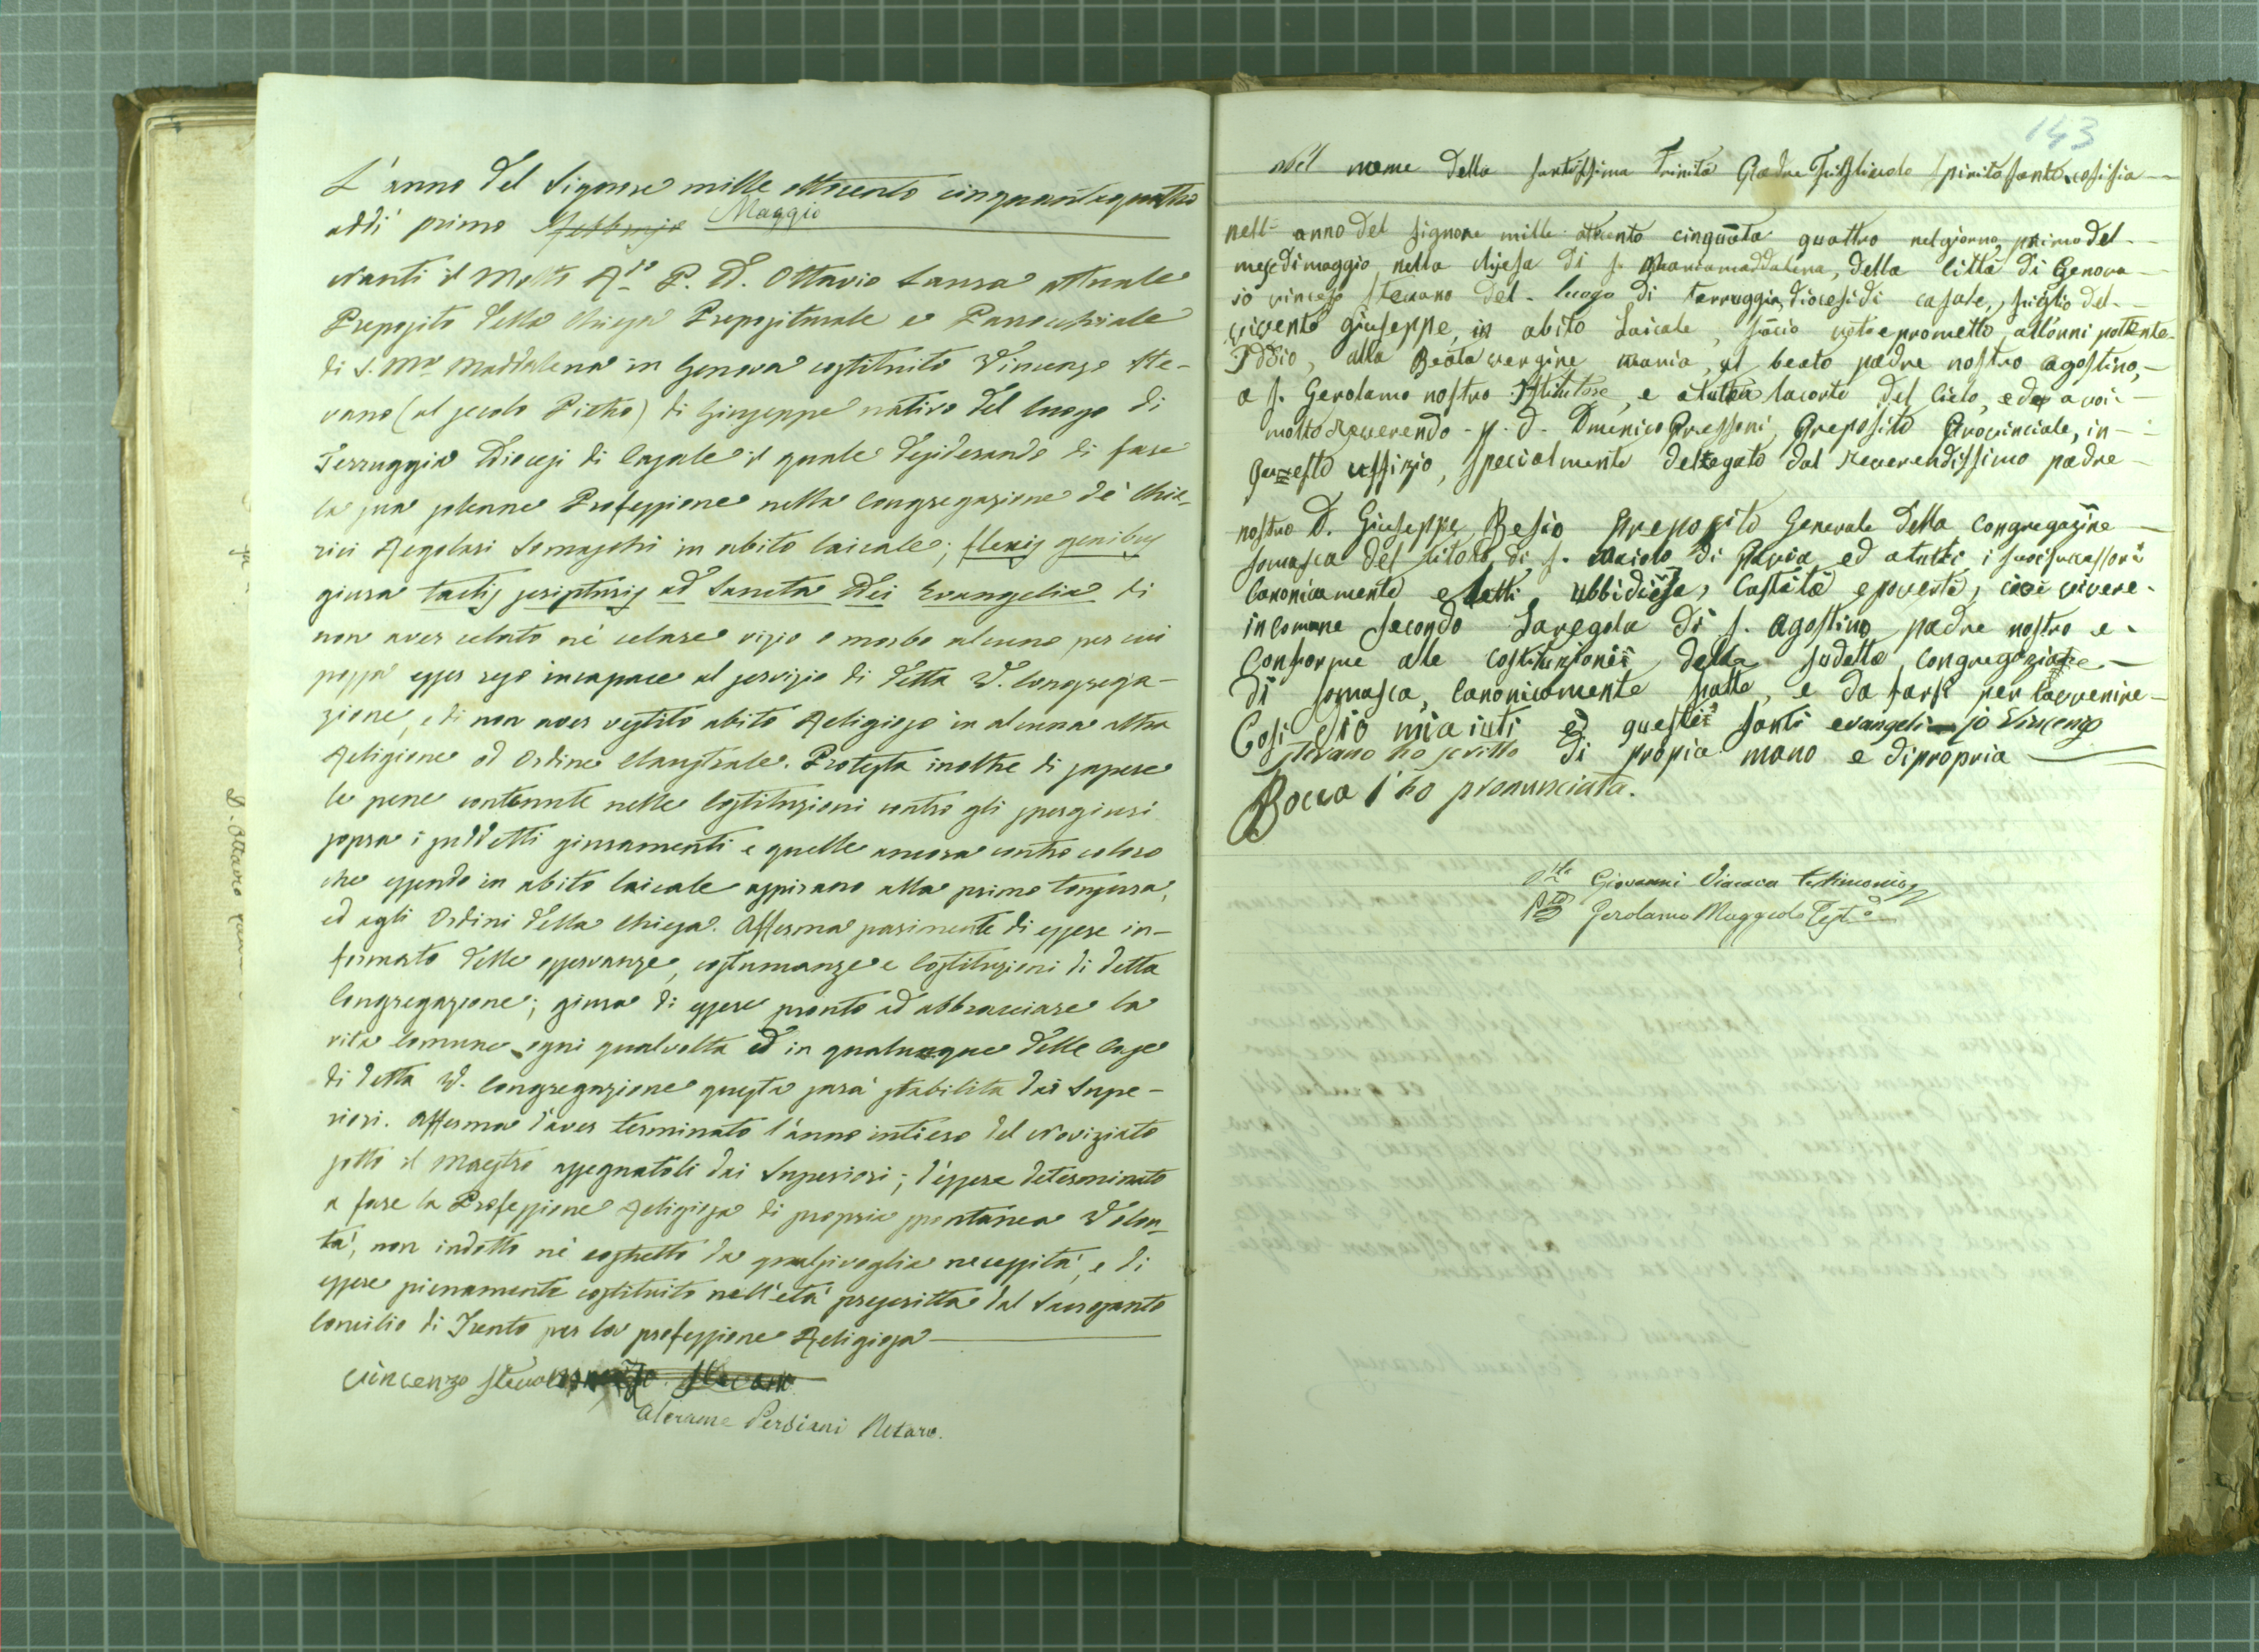 L'anno del Signore mille ottocento cinquantaquattro
addi primo Febbrajo Maggio
Nanti il Molto R.do P. D. Ottavio Sausa attuale
Preposito della Chiesa Prepositurale e Parrocchiale
di S. Ma Maddalena in Genova costituito Vincenzo Ste-
vano (al secolo Pietro) di Giuseppe nativo del luogo di
Terruggia Diocesi di Casale il quale desiderando di fare
la sua solenne Professione nella Congregazione de' Chie-
rici Regolari Somaschi in abito laicale; flexis genibus
giura tactis scripturis ad Sancta Dei Evangelia di
non aver celato nè celare vizio o morbo alcuno per cui
possa esser reso incapace al servizio di detta V. Congrega-
zione, e di non aver vestito abito Religioso in alcuna altra
Religione od Ordine Claustrale. Protesta inoltre di sapere
le pene contenute nelle Costituzioni contro gli spergiuri
sopra i suddetti giuramenti e quelle ancora contro coloro
che essendo in abito laicale aspirano alla prima tonsura,
ed agli Ordini della Chiesa. Afferma parimente di essere in-
formato delle osservanze, costumanze e Costituzioni di detta
Congregazione; giura di essere pronto ad abbracciare la
vita comune ogni qualvolta ed in qualunque delle Case
di detta V. Congregazione questa sarà stabilita dai Supe-
riori. Afferma d'aver terminato l'anno intiero del Noviziato
sotto il Maestro assegnatoli dai Superiori; d'essere determinato
a fare la Professione Religiosa di propria spontanea Volon-
tà, non indotto nè costretto da qualsivoglia necessità, e di
essere pienamente costituito nell'età prescritta dal Sacrosanto
Concilio di Trento per la professione Religiosa
Vincenzo Stevano
Alerame Persiani Notaro.
D. Ottavio
143
Nel nome della santissima Trinità Padre Figliuolo Spirito santo cosi sia
nell- anno del signore mille ottcento cinquata quattro nel giorno primo del
mese di maggio nella chiesa di s. Maria maddalena, della Città di Genova
io vincezo stevano del- luogo di terruggia, diocesi di casale, figlio del-
vivente giuseppe, in abito Laicale, facio voto e prometto all'onni pottente
Iddio, alla Beata vergine maria, al beato padre nostro agostino,
a s. Gerolamo nostro Istitutore, e a tutta la corte del Cielo, ed a voi
molto Reverendo - p. d. Dmenico Pressoni, Preposito Provinciale, in
questo uffizio, specialmente delegato dal Reverendissimo padre
nostro D. Giuseppe Besio Preposito Generale della congregazine
somasca del titolo di s. Maiolo di Pavia, ed a tutti i suoi sucassori
Canonicamente eletti, ubbidiesa, Castità e povertà, cioè vivere
in comune secondo La regola di s. agostino padre nostro e
Conforme alle costituzioni della sudetta congregazione
di somasca, Canonicamente fatte, e da farsi per lavvenire
Cosi dio mi aiuti e questi santi evangeli io Vincenzo
stevano ho scritto di propia mano e di propria
Bocca l'ho pronunciata.
Giovanni Viacava testimonio
Gerolamo Maggiolo Test.o